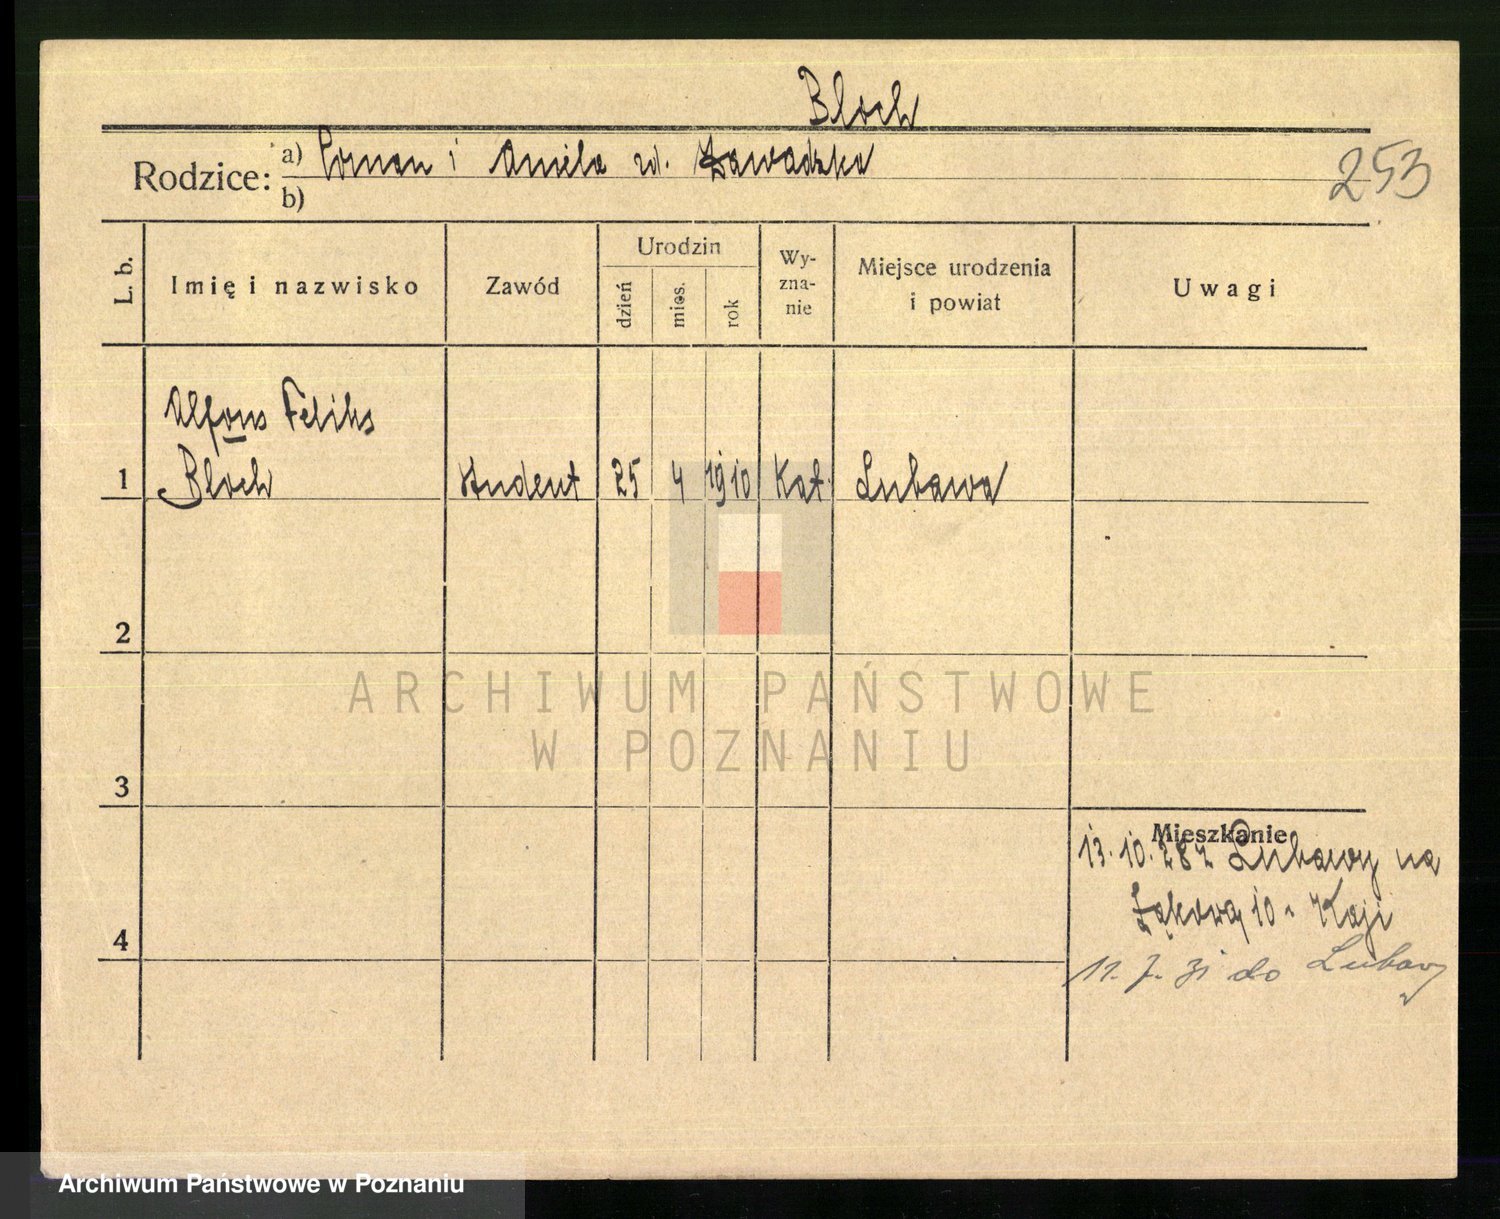 Bloch
Rodzice: a) Roman i Aniela zd. Zawadzka
b)
253
L. b.
Imię i nazwisko
Zawód
Urodzin
dzień
mies.
rok
Wy-
zna-
nie
Miejsce urodzenia
i powiat
Uwagi
Alfons Feliks
1 Bloch student 25 4 1910 Kat. Lubawa
2
ARCHIWUM PAŃSTWOWE
W POZNANIU
3
Mieszkanie
13.10.28 z Lubawy na
Łąkową 10 Kaji
4
11.7.31 do Lubawy
Archiwum Państwowe w Poznaniu